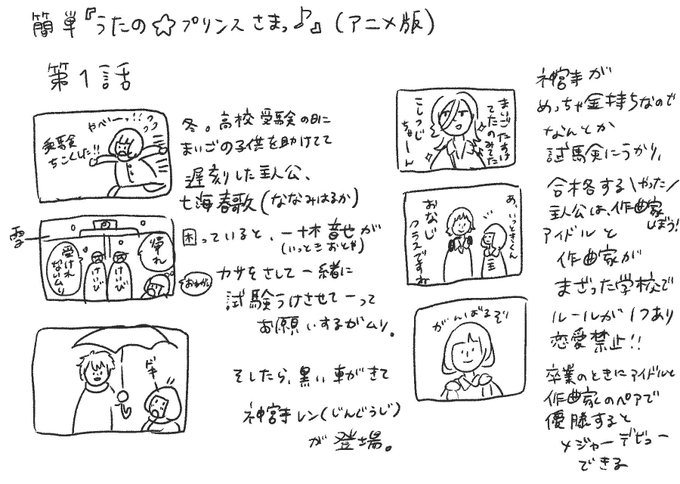 簡単『うたの☆プリンスさまっ♪』(アニメ版)
第1話
やべーっ!!
受験
ちこくした!!
冬。高校受験の日に
まいごの子供を助けてて
遅刻した主人公、
七海春歌(ななみはるか)
雪
帰れ
受けれ
ないムリ
けいび
けいび
おねがい
困っていると、一十木音也が
(いっときおとや)
カサをさして一緒に
試験うけさせてーって
お願いするがムリ。
ドキ
そしたら、黒い車がきて
神宮寺レン(じんぐうじ)
が登場。
まいごたすけ
てたのみてた
こしつじ
ちゅーん
神宮寺が
めっちゃ金持ちなので
なんとか
試験にうかり、
合格する\やった/
主人公は、作曲家
しぼう!
アイドルと
作曲家が
まざった学校で
ルールが1つあり
恋愛禁止!!
あ、いっときくん
おなじ
クラスですね
がんばるぞ
卒業のときにアイドルと
作曲家のペアで
優勝すると
メジャーデビュー
できる